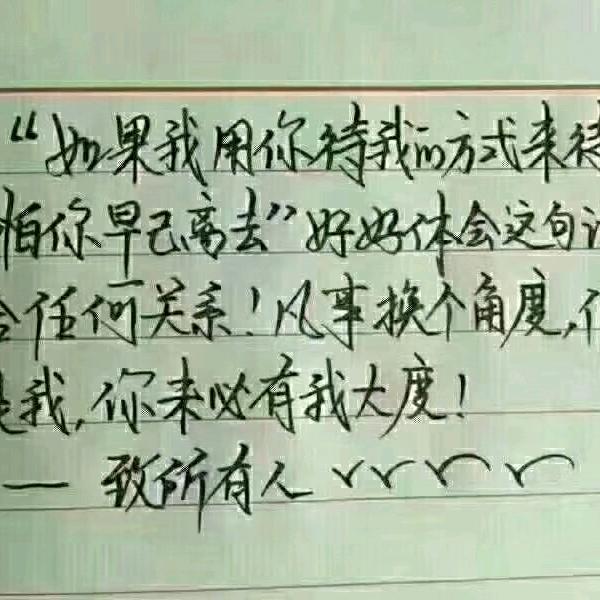 “如果我用你待我的方式来待
怕你早已离去”好好体会这句
任何关系！凡事换个角度，
我，你未必有我大度！
— 致所有人